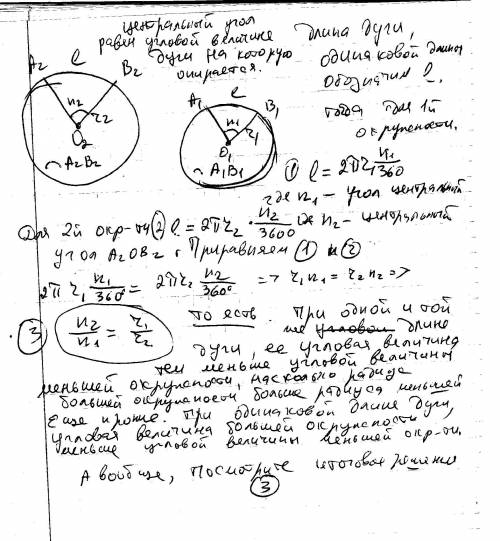 центральный угол
равен угловой величине
дуги на которую
опирается.
длина дуги,
одинаковой длины
обозначим l.
тогда для 1й
окружности.
A2 l B2
n2 r2
O2
◠A2B2
l
A1 B1
n1 r1
O1
◠A1B1
① l = 2πr1 n1/360
где n1 – угол центральный
Для 2й окр-ти ② l = 2πr2 · n2/360° где n2 – центральный
угол A2OB2. Приравняем ① и ②
2πr1 n1/360° = 2πr2 n2/360° => r1n1 = r2n2 =>
③ n2/n1 = r1/r2
то есть. При одной и той
же угловой длине
дуги, ее угловая величина
тем меньше угловой величины
меньшей окружности, насколько радиус
большей окружности больше радиуса меньшей
Еще короче. При одинаковой длине дуги,
угловая величина большей окружности
меньше угловой величины меньшей окр-ти.
А вообще, посмотрите итоговое решение
③